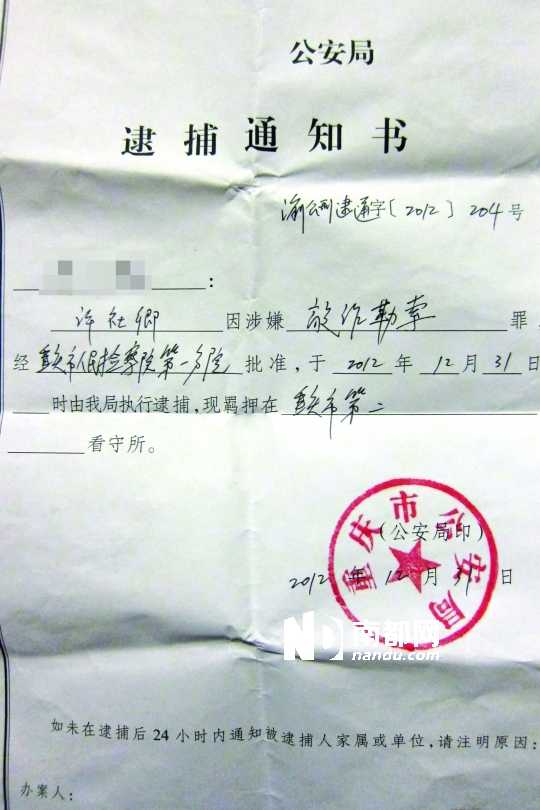 公安局
逮捕通知书
渝公刑逮通字〔2012〕204号
:
许社卿 因涉嫌 敲诈勒索 罪
经 重庆市人民检察院第一分院 批准，于 2012 年 12 月 31 日
时由我局执行逮捕，现羁押在 重庆市第二
看守所。
(公安局印)
重庆市公安局
2012 年 12 月 31 日
ND 南都网
nandu.com
如未在逮捕后24小时内通知被逮捕人家属或单位，请注明原因：
办案人：